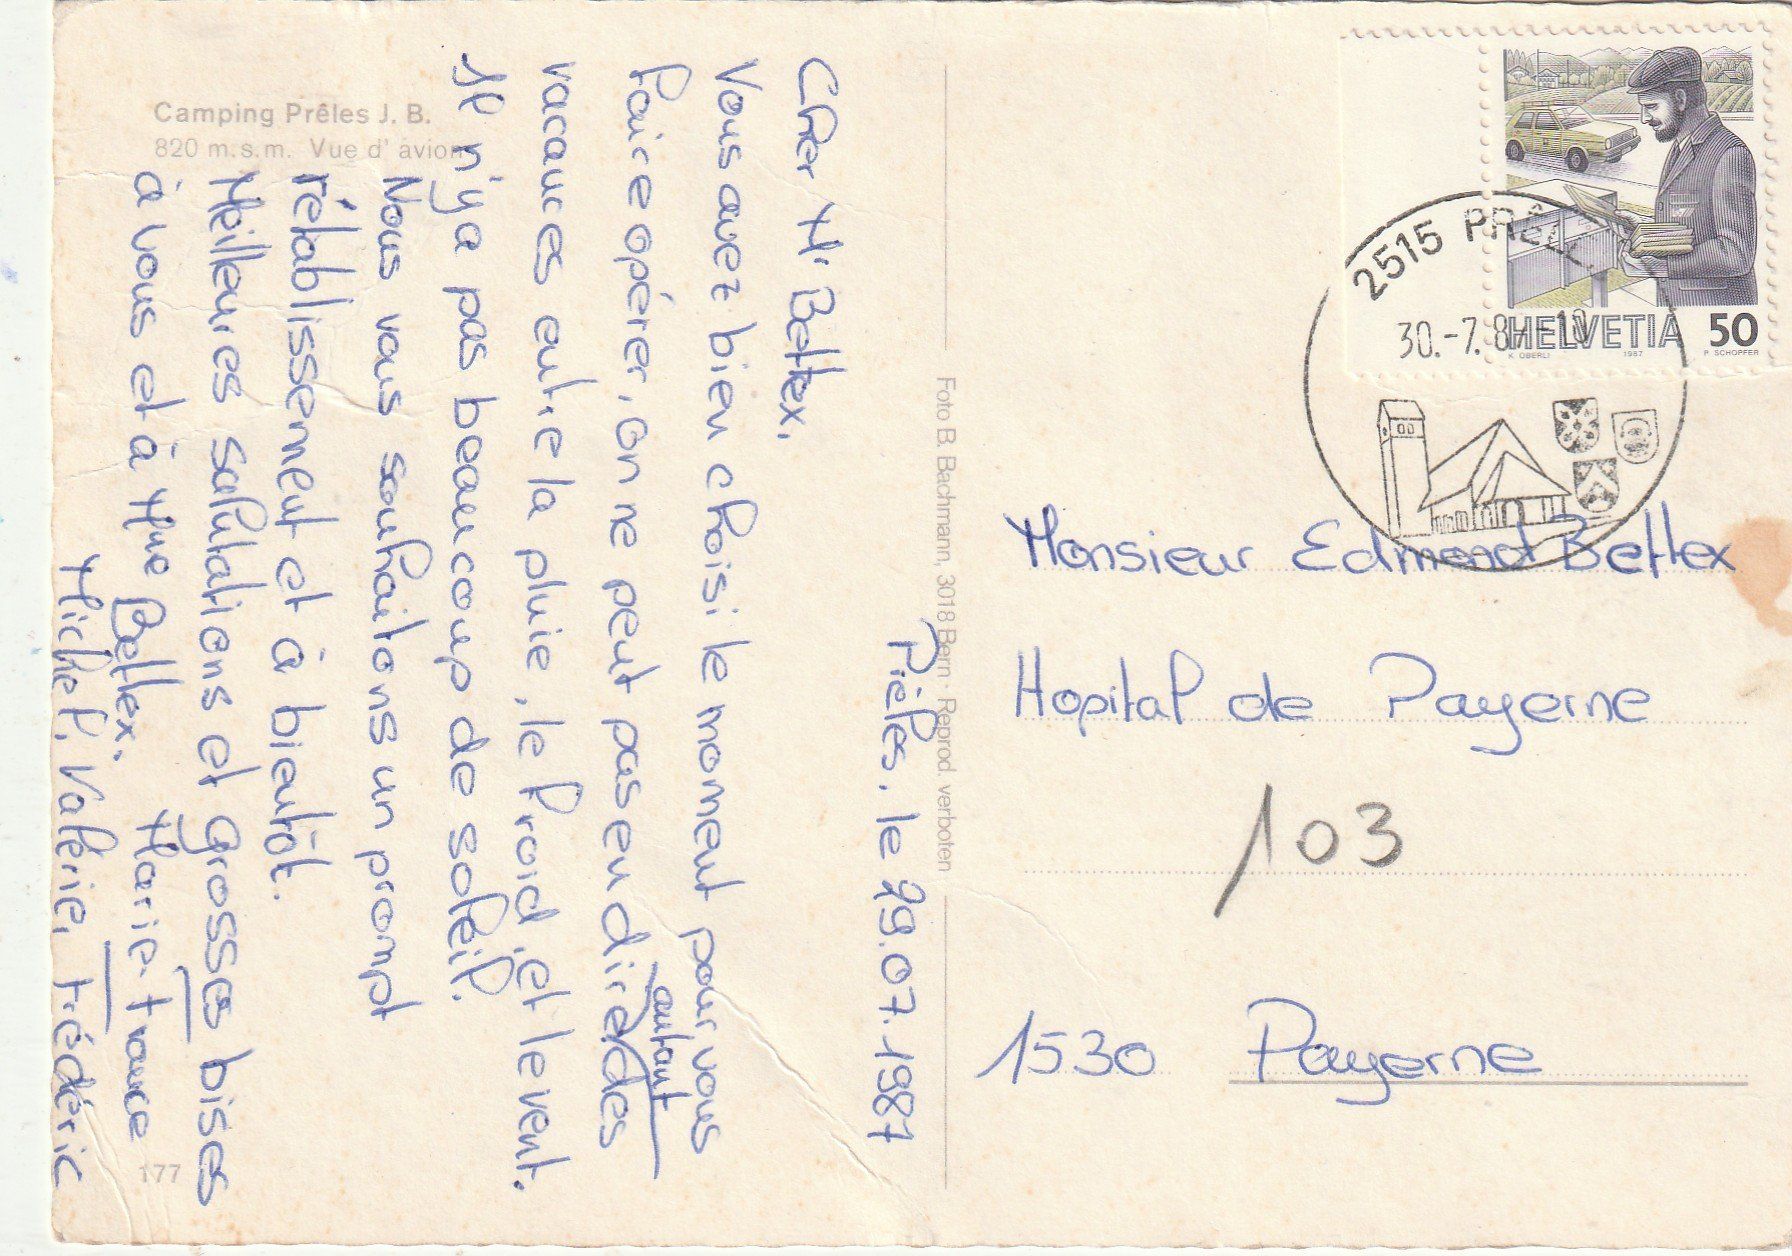 Camping Prêles J. B.
820 m.s.m. Vue d' avion
Prêles, le 29.07.1987
Cher Mr Bettex,
Vous avez bien choisi le moment pour vous
faire opérer, on ne peut pas en dire autant des
vacances entre la pluie, le froid, et le vent.
Il n'y a pas beaucoup de soleil.
Nous vous souhaitons un prompt
rétablissement et à bientôt.
Meilleures salutations et grosses bises
à vous et à Mme Bettex.
Marie-France
Michel, Valérie, Frédéric
177
Foto B. Bachmann, 3018 Bern · Reprod. verboten
2515 PRÊL
30.-7.8 -10
HELVETIA 50
K. OBERLI 1987 P. SCHOPFER
Monsieur Edmond Bettex
Hopital de Payerne
103
1530 Payerne